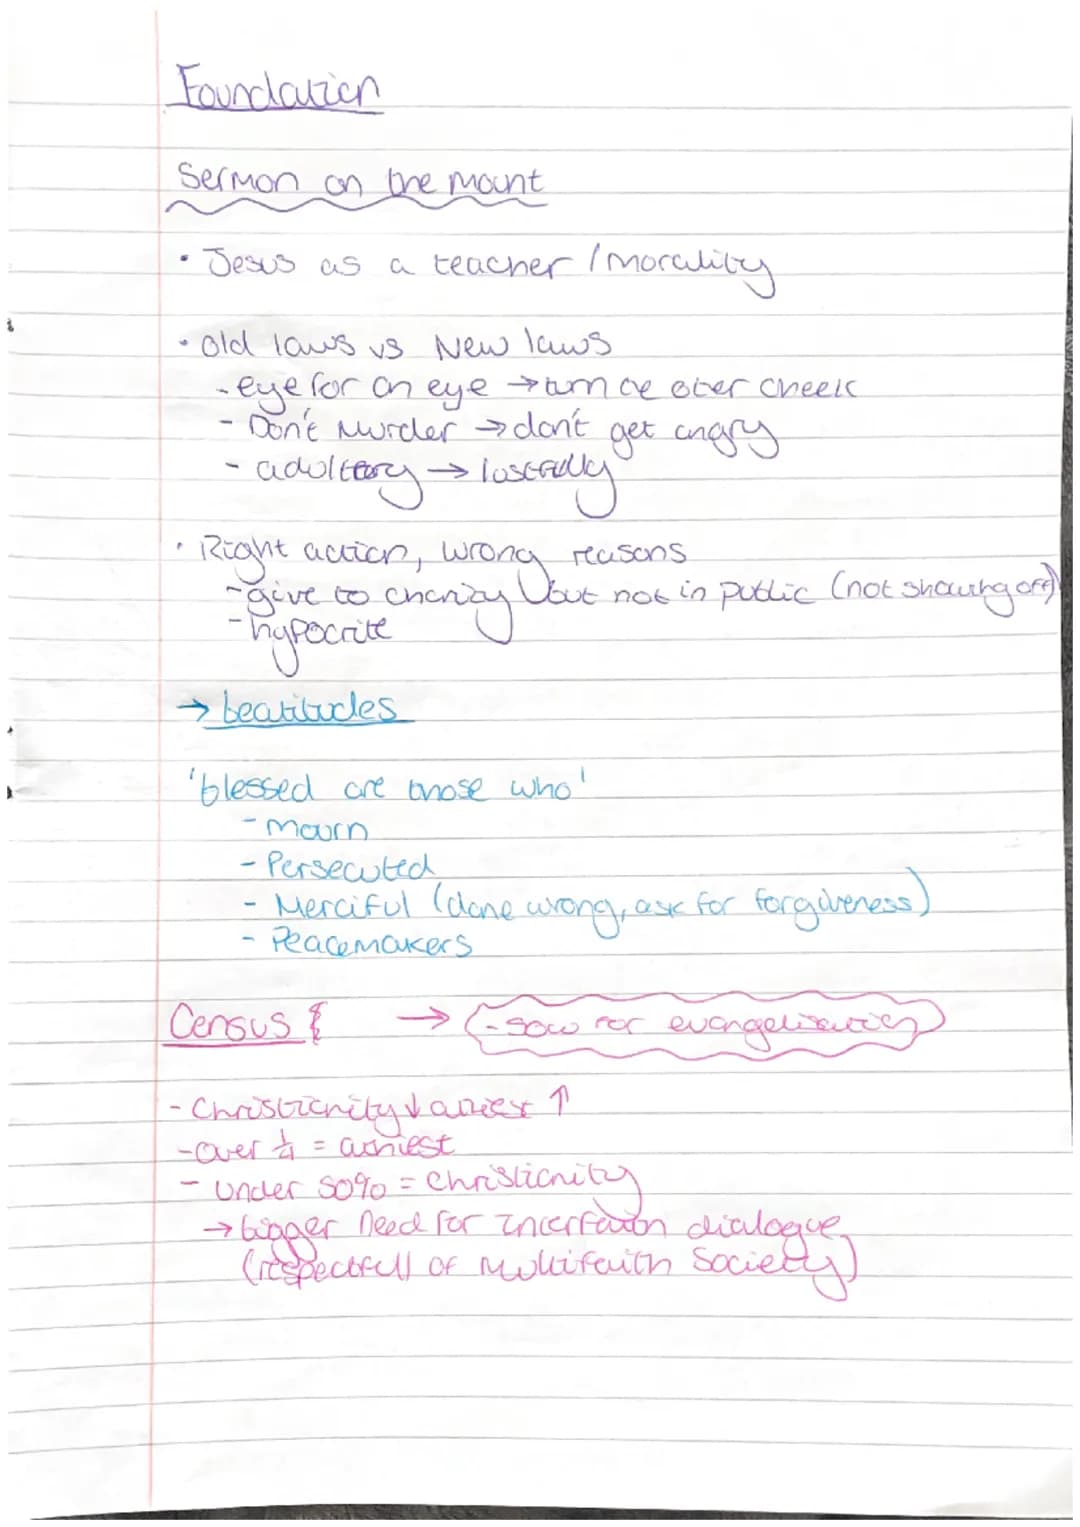 Foundation
Sermon on the mount
• Jesus as a teacher / morality
• old laws vs New laws
- eye for an eye → turn the other cheek
- Don't Murder → don't get angry
- adultery → lustfully
• Right action, wrong reasons
- give to charity but not in public (not showing off)
- hypocrite
→ beatitudes
'blessed are those who'
- mourn
- Persecuted
- Merciful (done wrong, ask for forgiveness)
- Peacemakers
Census { → - for evangelisation
- Christianity ↓ athiest ↑
- over 1/4 = athiest
- under 50% = Christianity
→ bigger need for interfaith dialogue
(respectfull of multifaith society)